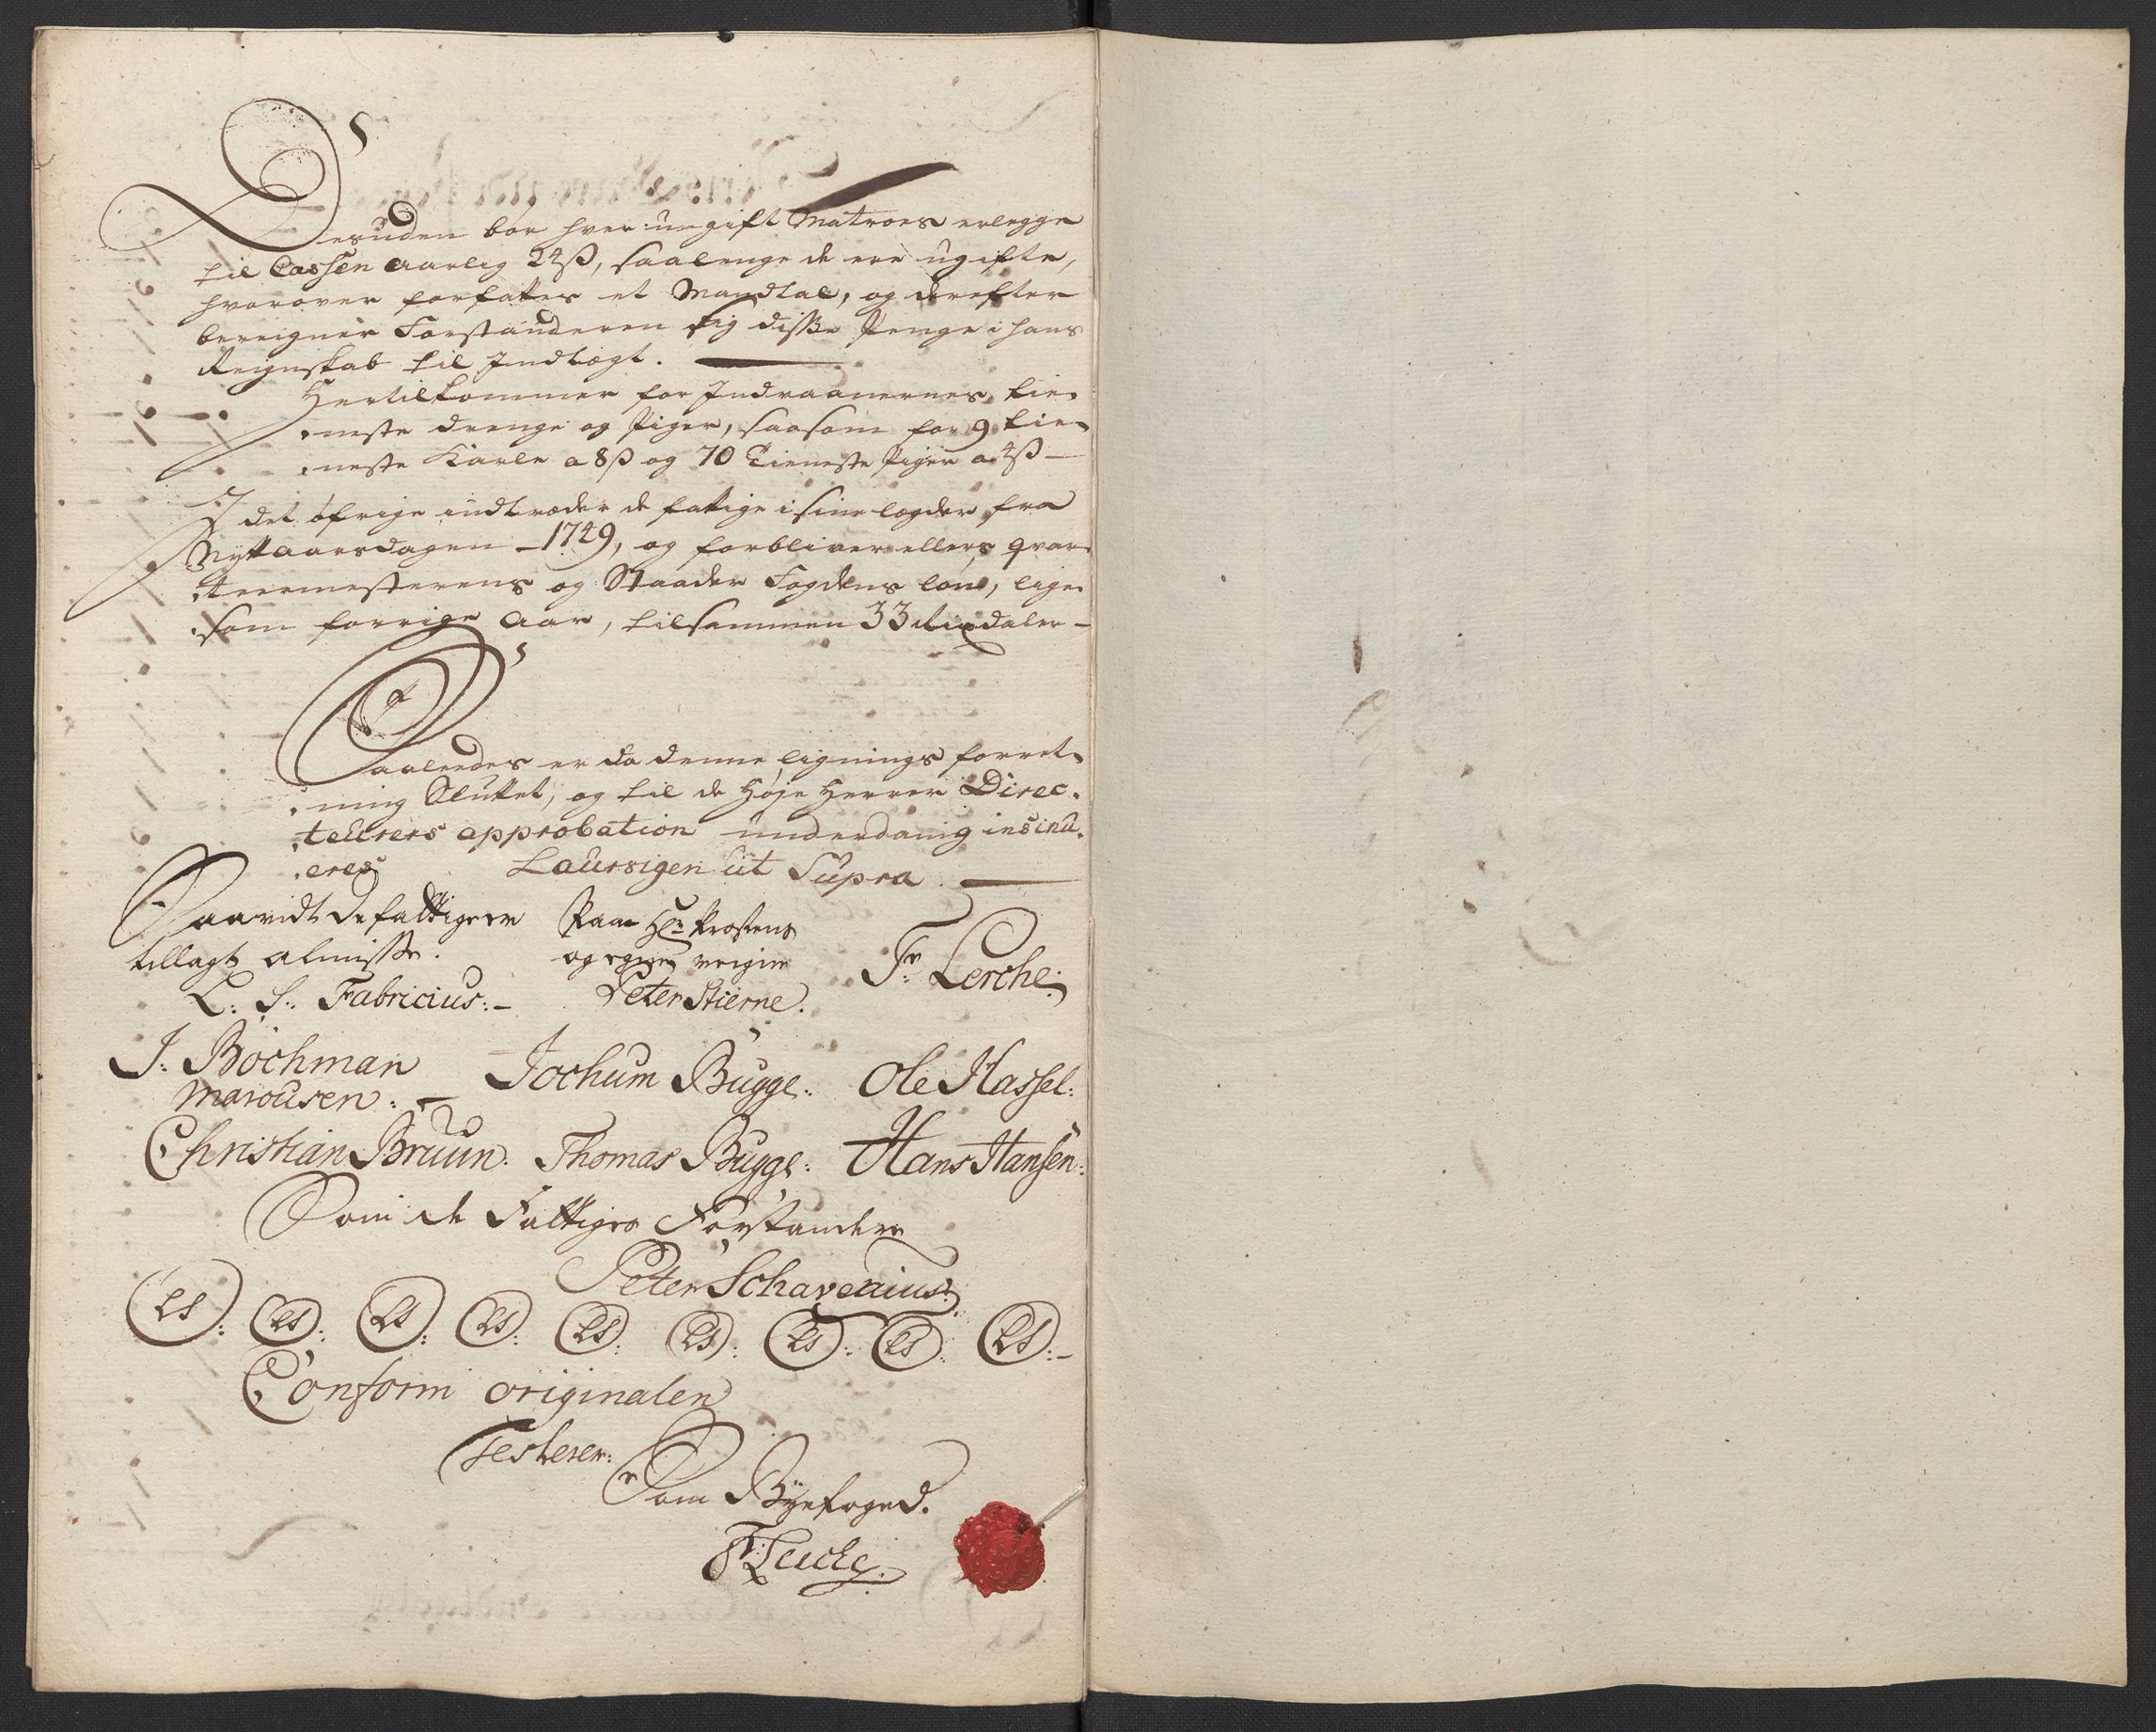 Desuden bør hver ugift Matroes erlegge
til Cassen aarlig 24ß, saalenge de ere ugifte,
hvorover forfattes et Mandtal, og derefter
bereigner Forstanderen sig disße Penge i hans
Reignskab til Indtægt.
Hertilkommer for Indvaanernes tie-
neste drenge og Piger, saasom for 9 tie-
neste Karle a 8ß og 70 Tieneste Piger a 4ß
I det øfrige indtræder de fattige i sine lægder fra
Nyttaarsdagen 1749, og forbliver ellers qvar-
teermesterens og Staader Fogdens løn, lige-
som forrige Aar, tilsammen 33 Rixdaler
Saaledes er da denne lignings forret-
ning Sluttet, og til de Høje Herrer Direc-
teurers approbation underdanig insinu-
eres Laurvigen ut Supra.
Saavidt de fattige er Paa Hr: Prostens
tillagt almisse. og egne veigne Fr: Lerche:
L: S: Fabricius:- Peter Stierne.
J: Bøchman Jochum Bugge: Ole Hassel:
Marcusen:
Christian Bruun. Thomas Bugge: Hans Hansen:
Som de Fattiges Forstander
Peter Schavenius:
LS: LS: LS: LS: LS: LS: LS: LS: LS:-
Conform originalen
Testerer:
Som Byefoged.
Fr: Lerche.